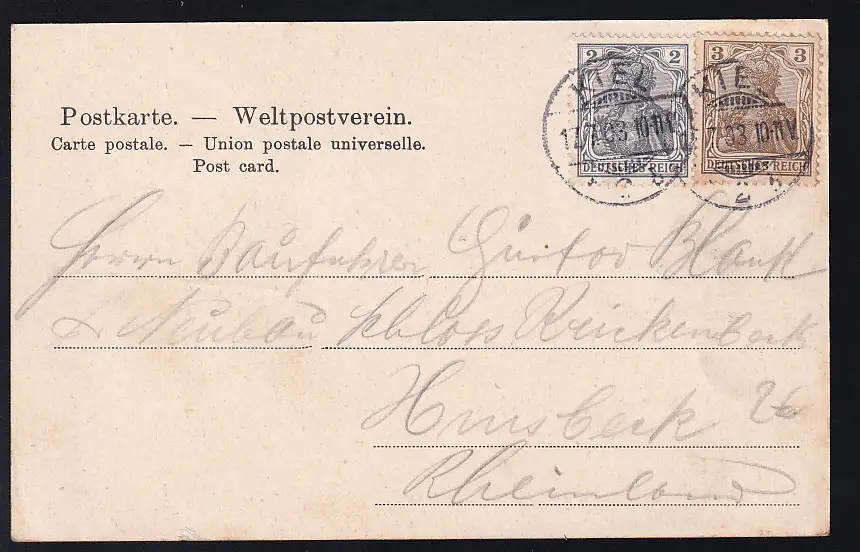 2 2
3 3
KIEL
KIE
17.7.03 10-11V
7.03 10-11V
DEUTSCHES REICH
DEUTSCHES REICH
Postkarte. — Weltpostverein.
Carte postale. — Union postale universelle.
Post card.
Herrn Bauführer Gustav Blank
Neubau Schloss Kriekenbeck
Hinsbeck
Rheinland